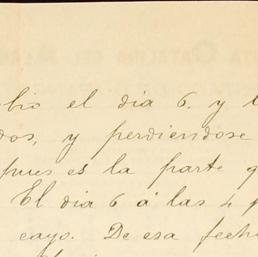 el dia 6. y
dos, y perdiendose
pues es la parte
El dia 6 á las 4
cayo. De esa fech